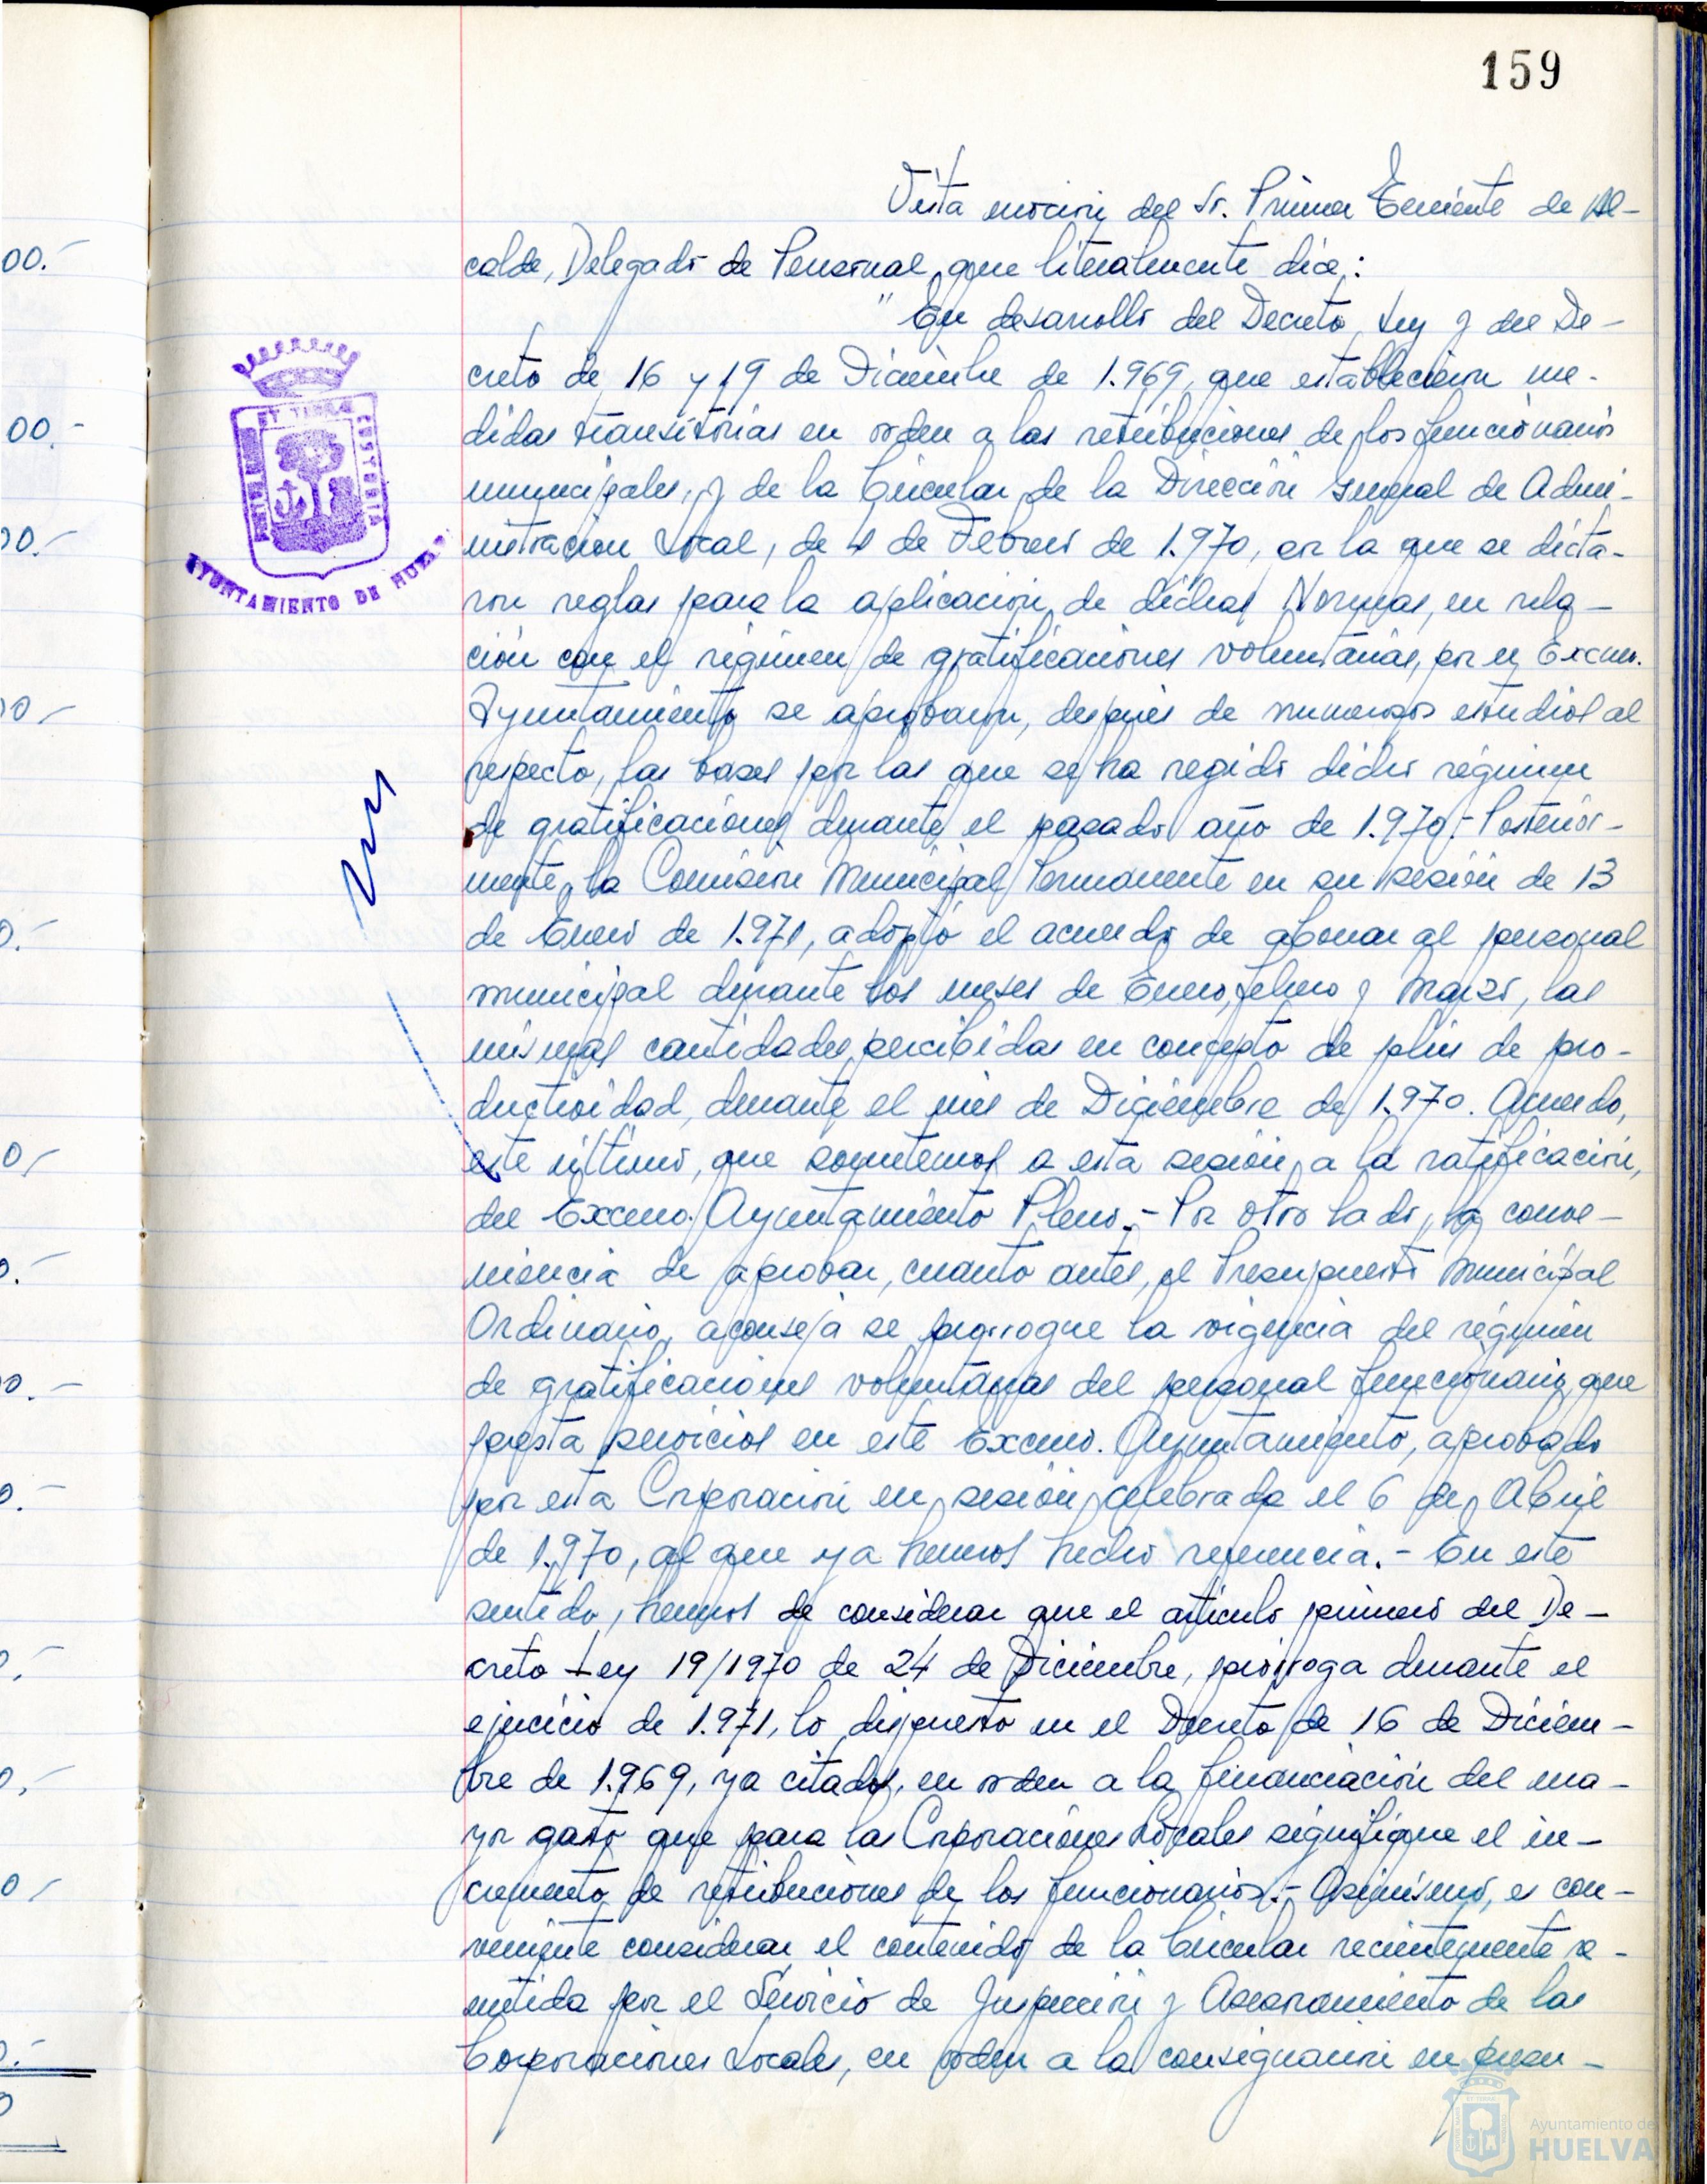 159
Vista moción del Sr. Primer Teniente de Al-
calde, Delegado de Personal, que literalmente dice:
"En desarrollo del Decreto Ley y del De-
creto de 16 y 19 de Diciembre de 1.969, que establecieron me-
didas transitorias en orden a las retribuciones de los funcionarios
municipales, y de la Circular de la Dirección General de Admi-
nistración Local, de 4 de Febrero de 1.970, en la que se dicta-
ron reglas para la aplicación de dichas Normas, en rela-
ción con el régimen de gratificaciones voluntarias, por el Excmo.
Ayuntamiento se aprobaron, después de numerosos estudios al
respecto, las bases por las que se ha regido dicho régimen
de gratificaciones durante el pasado año de 1.970.- Posterior-
mente, la Comisión Municipal Permanente en su sesión de 13
de Enero de 1.971, adoptó el acuerdo de abonar al personal
municipal durante los meses de Enero, febrero y Marzo, las
mismas cantidades percibidas en concepto de plus de pro-
ductividad, durante el mes de Diciembre de 1.970. Acuerdo,
este último, que sometemos a esta sesión, a la ratificación,
del Excmo. Ayuntamiento Pleno.- Por otro lado, la conve-
niencia de aprobar, cuanto antes, el Presupuesto Municipal
Ordinario, aconseja se prorrogue la vigencia del régimen
de gratificaciones voluntarias del personal funcionario que
presta servicios en este Excmo. Ayuntamiento, aprobado
por esta Corporación en sesión celebrada el 6 de Abril
de 1.970, al que ya hemos hecho referencia.- En este
sentido, hemos de considerar que el artículo primero del De-
creto Ley 19/1970 de 24 de Diciembre, prorroga durante el
ejercicio de 1.971, lo dispuesto en el Decreto de 16 de Diciem-
bre de 1.969, ya citados, en orden a la financiación del ma-
yor gasto que para las Corporaciones Locales signifique el in-
cremento de retribuciones de los funcionarios.- Asimismo, es con-
veniente considerar el contenido de la Circular recientemente re-
mitida por el Servicio de Inspección y Asesoramiento de las
Corporaciones Locales, en orden a la consignación en presu-
AYUNTAMIENTO DE HUELVA
00.-
00.-
00.-
Ayuntamiento de
HUELVA